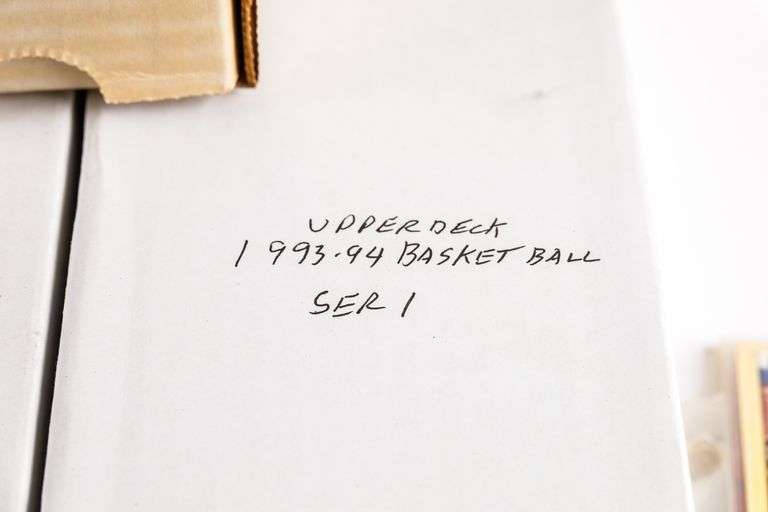 UPPERDECK
1993-94 BASKETBALL
SER 1